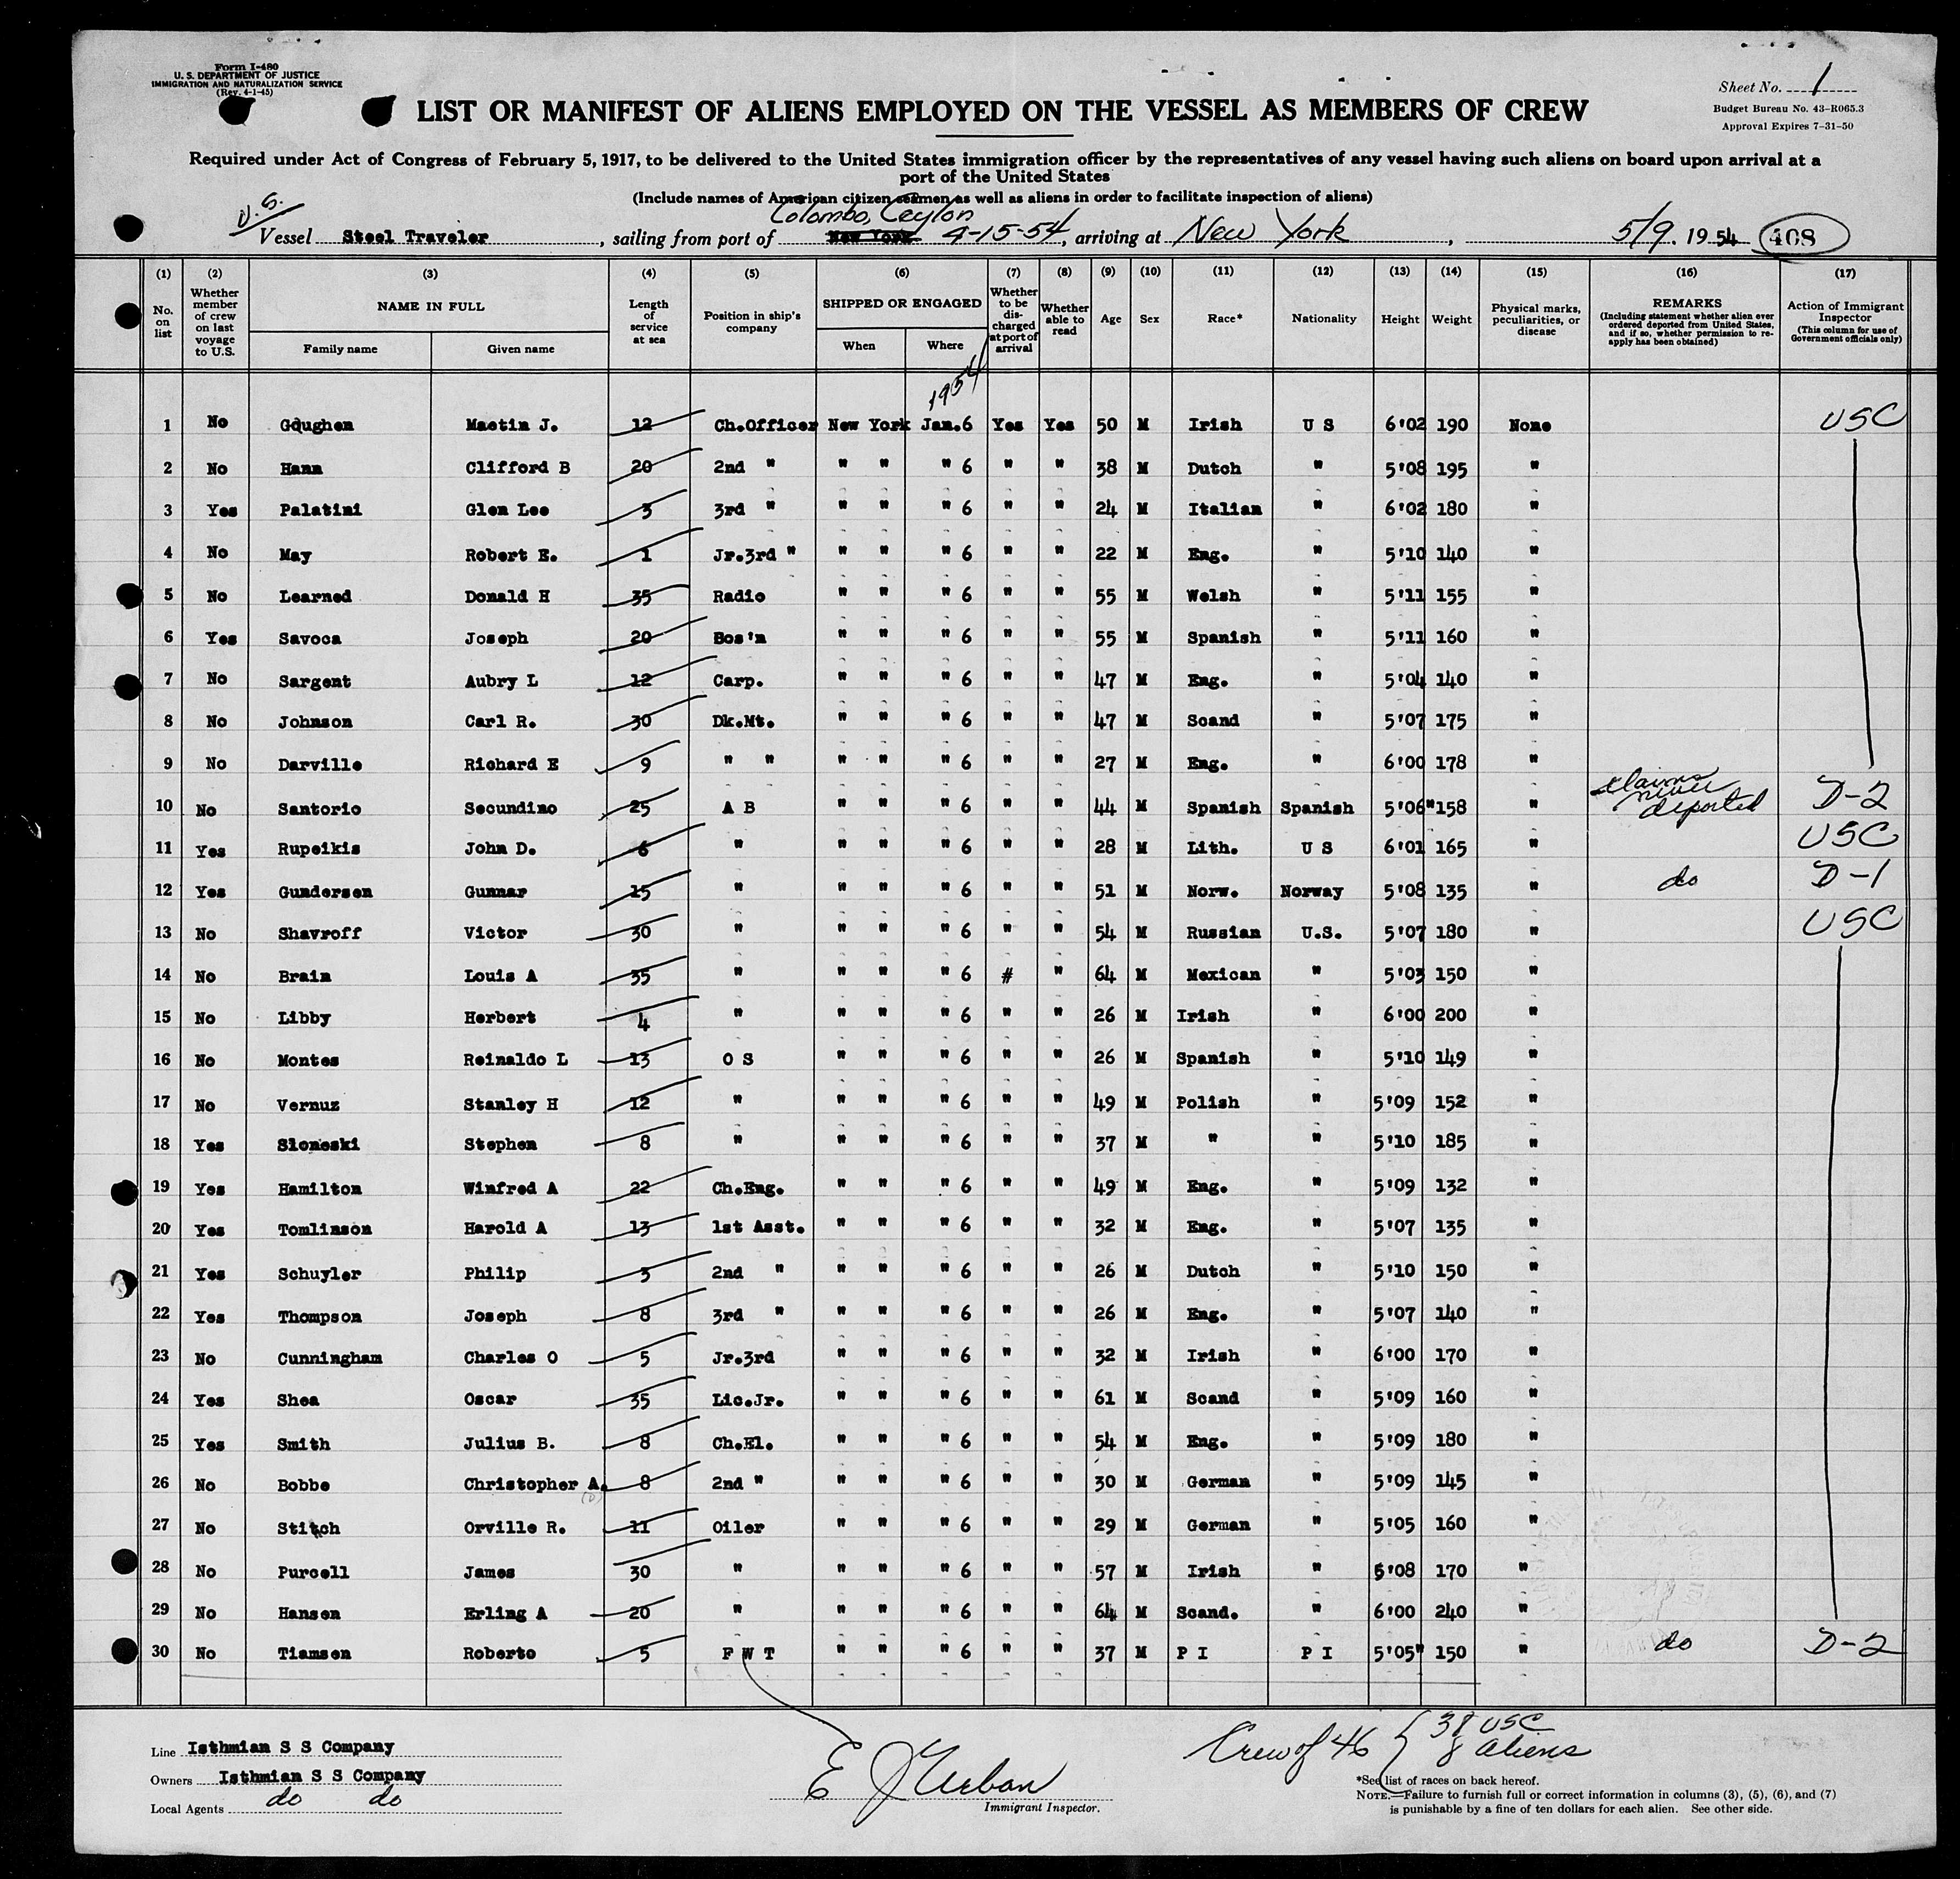 Form I-480
U. S. DEPARTMENT OF JUSTICE
IMMIGRATION AND NATURALIZATION SERVICE
(Rev. 4-1-45)
Sheet No. 1
Budget Bureau No. 43-R065.3
Approval Expires 7-31-50
LIST OR MANIFEST OF ALIENS EMPLOYED ON THE VESSEL AS MEMBERS OF CREW
Required under Act of Congress of February 5, 1917, to be delivered to the United States immigration officer by the representatives of any vessel having such aliens on board upon arrival at a
port of the United States
(Include names of American citizen seamen as well as aliens in order to facilitate inspection of aliens)
Colombo, Ceylon
Vessel Steel Traveler, sailing from port of New York 4-15-54, arriving at New York, 5/9. 19 54 408
(1) (2) (3) (4) (5) (6) (7) (8) (9) (10) (11) (12) (13) (14) (15) (16) (17)
No. on list
Whether member of crew on last voyage to U.S.
NAME IN FULL
Family name
Given name
Length of service at sea
Position in ship's company
SHIPPED OR ENGAGED
When
Where
Whether to be discharged at port of arrival
Whether able to read
Age
Sex
Race*
Nationality
Height
Weight
Physical marks, peculiarities, or disease
REMARKS
(Including statement whether alien ever ordered deported from United States, and if so, whether permission to reapply has been obtained)
Action of Immigrant Inspector
(This column for use of Government officials only)
1954
1 No Goughen Maetin J. 12 Ch.Officer New York Jan.6 Yes Yes 50 M Irish U S 6'02 190 None USC
2 No Hann Clifford B 20 2nd " " " " 6 " " 38 M Dutch " 5'08 195 "
3 Yes Palatini Glen Lee 3 3rd " " " " 6 " " 24 M Italian " 6'02 180 "
4 No May Robert E. 1 Jr.3rd " " " " 6 " " 22 M Eng. " 5'10 140 "
5 No Learned Donald H 35 Radio " " " 6 " " 55 M Welsh " 5'11 155 "
6 Yes Savoca Joseph 20 Bos'n " " " 6 " " 55 M Spanish " 5'11 160 "
7 No Sargent Aubry L 12 Carp. " " " 6 " " 47 M Eng. " 5'04 140 "
8 No Johnson Carl R. 30 Dk.Mt. " " " 6 " " 47 M Scand " 5'07 175 "
9 No Darville Richard E 9 " " " " " 6 " " 27 M Eng. " 6'00 178 "
10 No Santorio Secundino 25 A B " " " 6 " " 44 M Spanish Spanish 5'06" 158 " claims never deported D-2
11 Yes Rupeikis John D. 6 " " " " 6 " " 28 M Lith. U S 6'01 165 " USC
12 Yes Gundersen Gunnar 15 " " " " 6 " " 51 M Norw. Norway 5'08 135 " do D-1
13 No Shavroff Victor 30 " " " " 6 " " 54 M Russian U.S. 5'07 180 " USC
14 No Brain Louis A 35 " " " " 6 # " 64 M Mexican " 5'03 150 "
15 No Libby Herbert 4 " " " " 6 " " 26 M Irish " 6'00 200 "
16 No Montes Reinaldo L 13 O S " " " 6 " " 26 M Spanish " 5'10 149 "
17 No Vernuz Stanley H 12 " " " " 6 " " 49 M Polish " 5'09 152 "
18 Yes Sloneski Stephen 8 " " " " 6 " " 37 M " " 5'10 185 "
19 Yes Hamilton Winfred A 22 Ch.Eng. " " " 6 " " 49 M Eng. " 5'09 132 "
20 Yes Tomlinson Harold A 13 1st Asst. " " " 6 " " 32 M Eng. " 5'07 135 "
21 Yes Schuyler Philip 3 2nd " " " " 6 " " 26 M Dutch " 5'10 150 "
22 Yes Thompson Joseph 8 3rd " " " " 6 " " 26 M Eng. " 5'07 140 "
23 No Cunningham Charles O 5 Jr.3rd " " " 6 " " 32 M Irish " 6'00 170 "
24 Yes Shea Oscar 35 Lic.Jr. " " " 6 " " 61 M Scand " 5'09 160 "
25 Yes Smith Julius B. 8 Ch.El. " " " 6 " " 54 M Eng. " 5'09 180 "
26 No Bobbe Christopher A. 8 2nd " " " " 6 " " 30 M German " 5'09 145 "
27 No Stitch Orville R. 11 Oiler " " " 6 " " 29 M German " 5'05 160 "
28 No Purcell James 30 " " " " 6 " " 57 M Irish " 5'08 170 "
29 No Hansen Erling A 20 " " " " 6 " " 64 M Scand. " 6'00 240 "
30 No Tiamsen Roberto 5 F W T " " " 6 " " 37 M P I P I 5'05" 150 " do D-2
Line Isthmian S S Company
Owners Isthmian S S Company
Local Agents do do
E J Urban
Immigrant Inspector.
Crew of 46 { 38 USC
8 aliens
*See list of races on back hereof.
NOTE.—Failure to furnish full or correct information in columns (3), (5), (6), and (7)
is punishable by a fine of ten dollars for each alien. See other side.